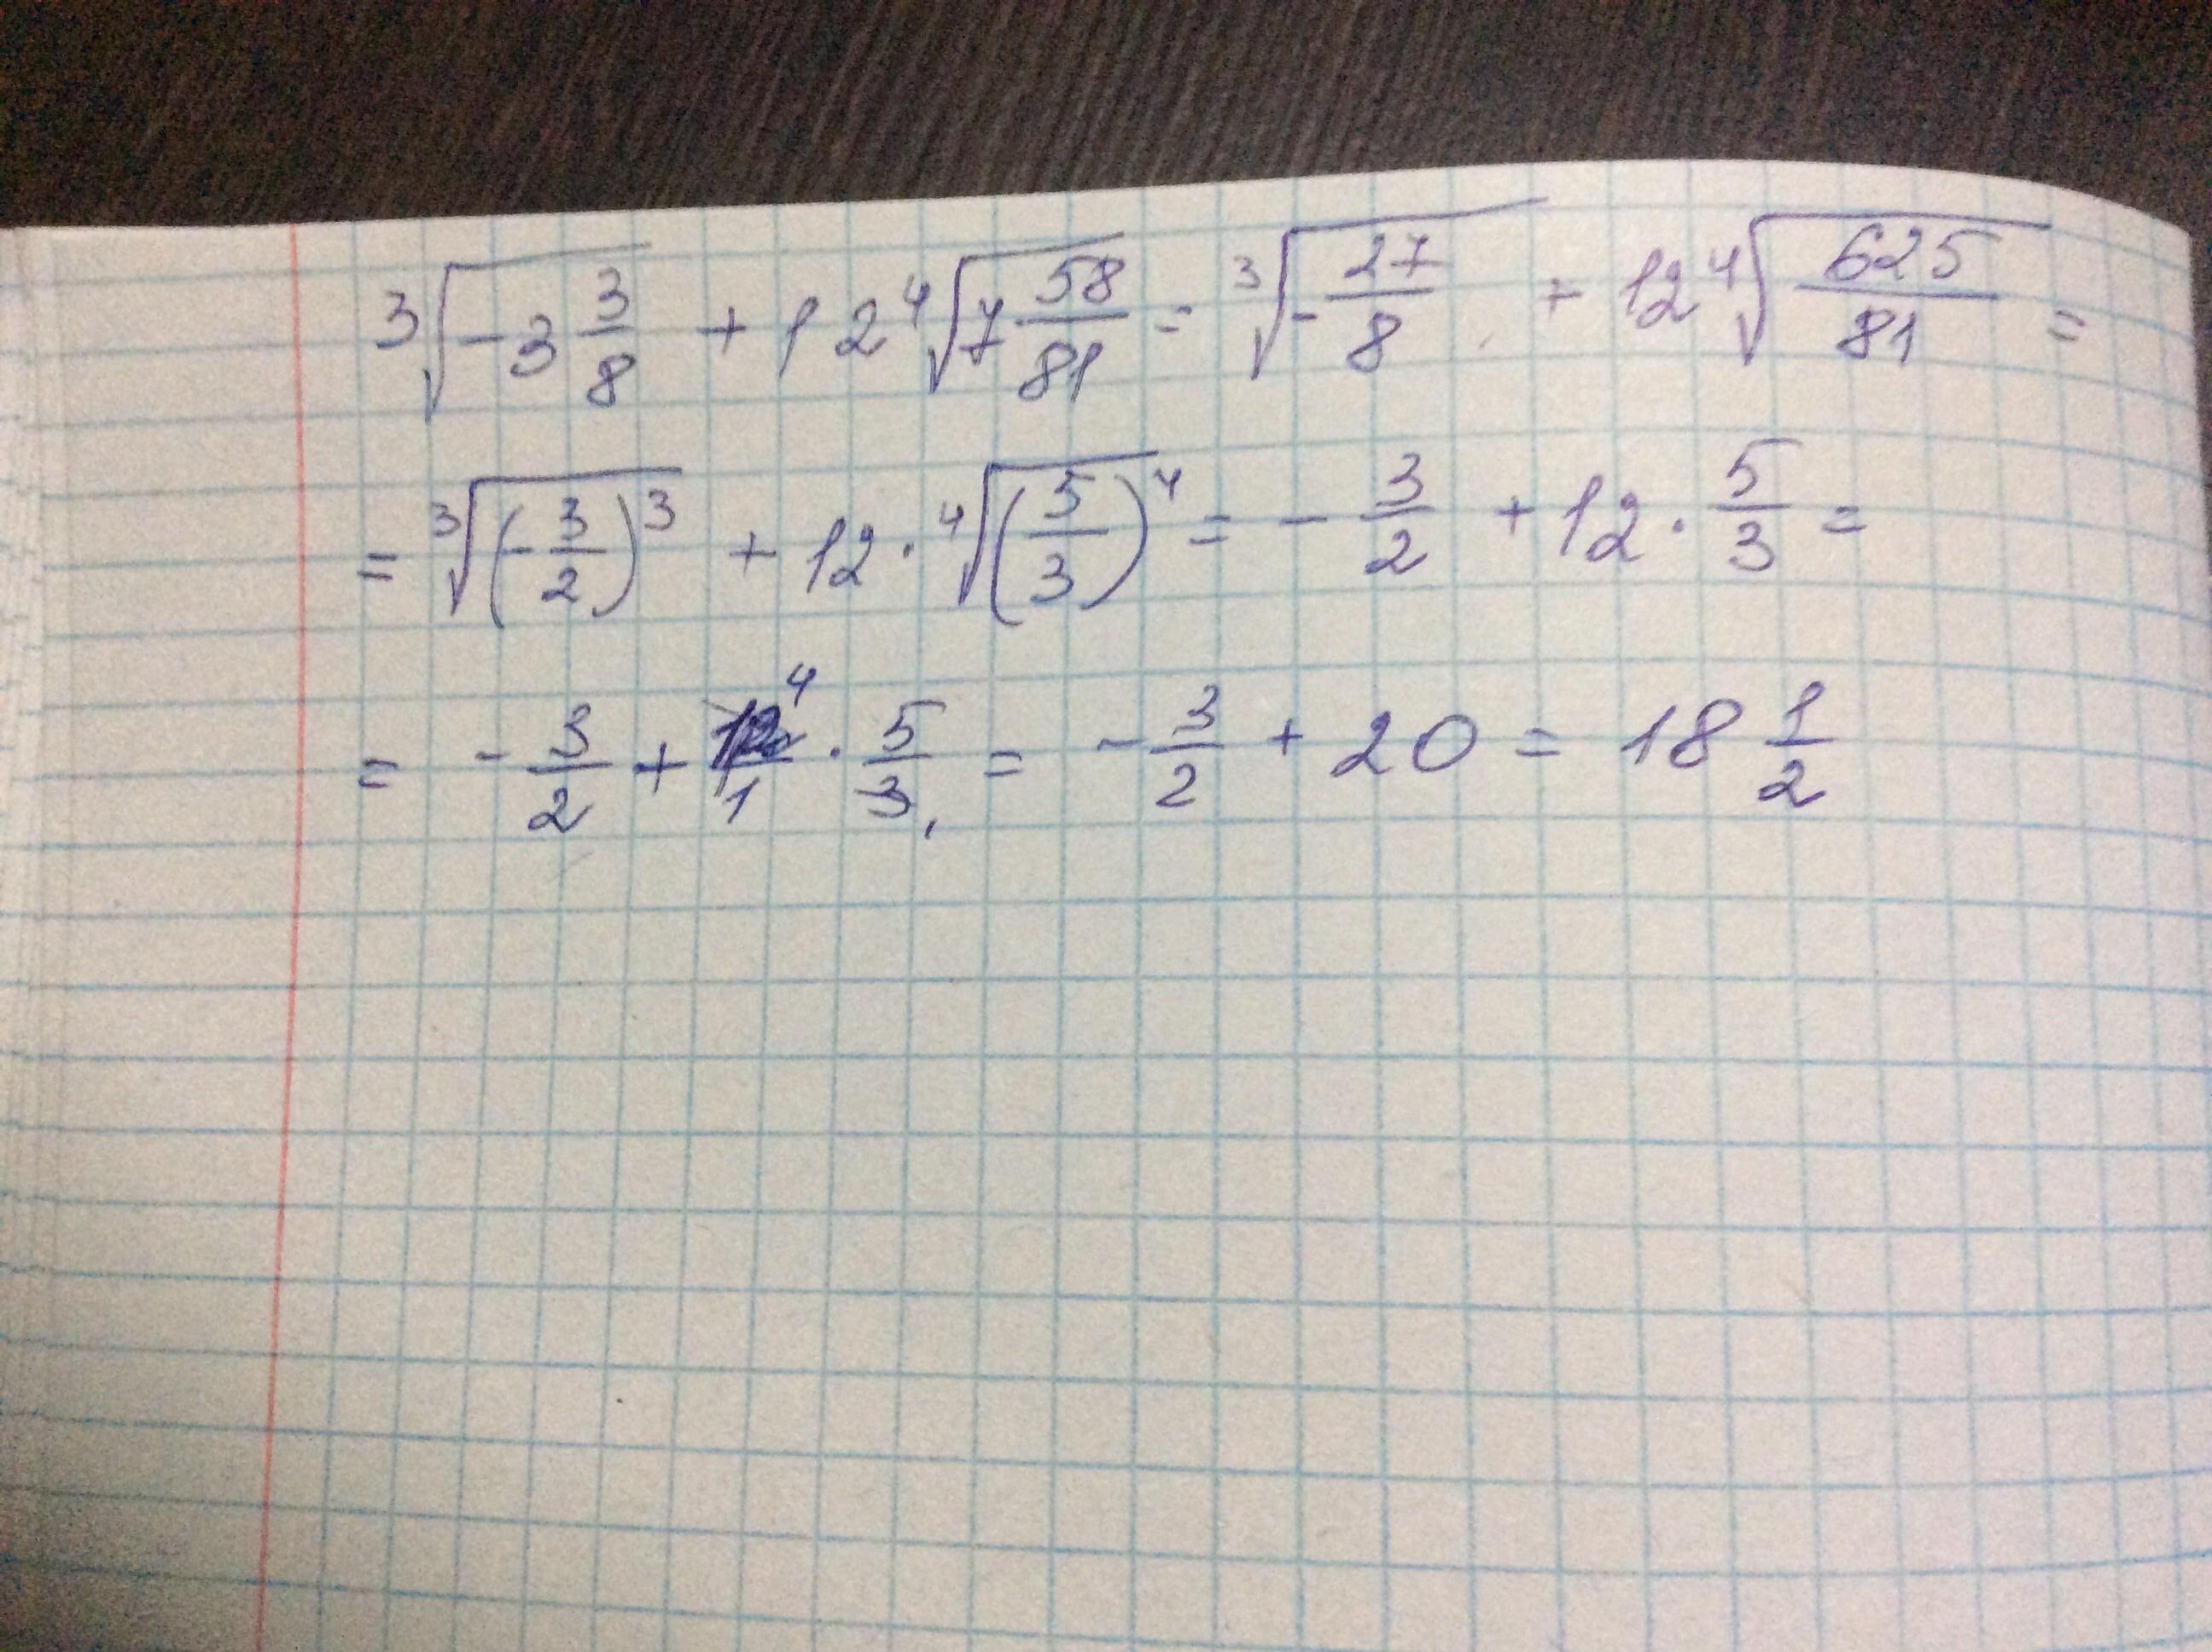 ∛(-3 3/8) + 12 ∜(7 58/81) = ∛(-27/8) + 12 ∜(625/81) =
= ∛((-3/2)³) + 12 · ∜((5/3)⁴) = - 3/2 + 12 · 5/3 =
= - 3/2 + 12⁴/1 · 5/3₁ = - 3/2 + 20 = 18 1/2